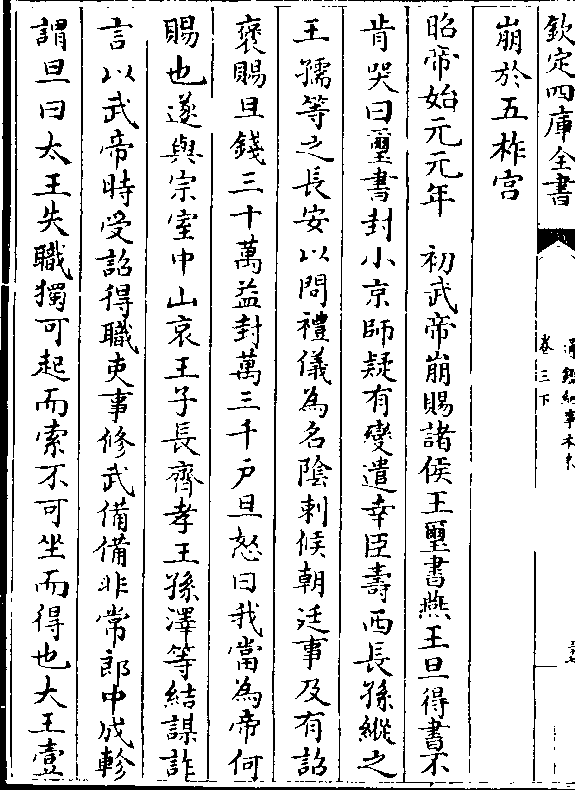 欽定四庫全書
通鑑紀事本末
卷三下
崩於五柞宫
昭帝始元元年　初武帝崩賜諸侯王璽書燕王旦得書不
肯哭曰璽書封小京師疑有變遣幸臣壽西長孫縱之
王孺等之長安以問禮儀為名陰刺候朝廷事及有詔
褒賜旦錢三十萬益封萬三千户旦怒曰我當為帝何
賜也遂與宗室中山哀王子長齊孝王孫澤等結謀詐
言以武帝時受詔得職吏事修武備備非常郎中成軫
謂旦曰大王失職獨可起而索不可坐而得也大王壹